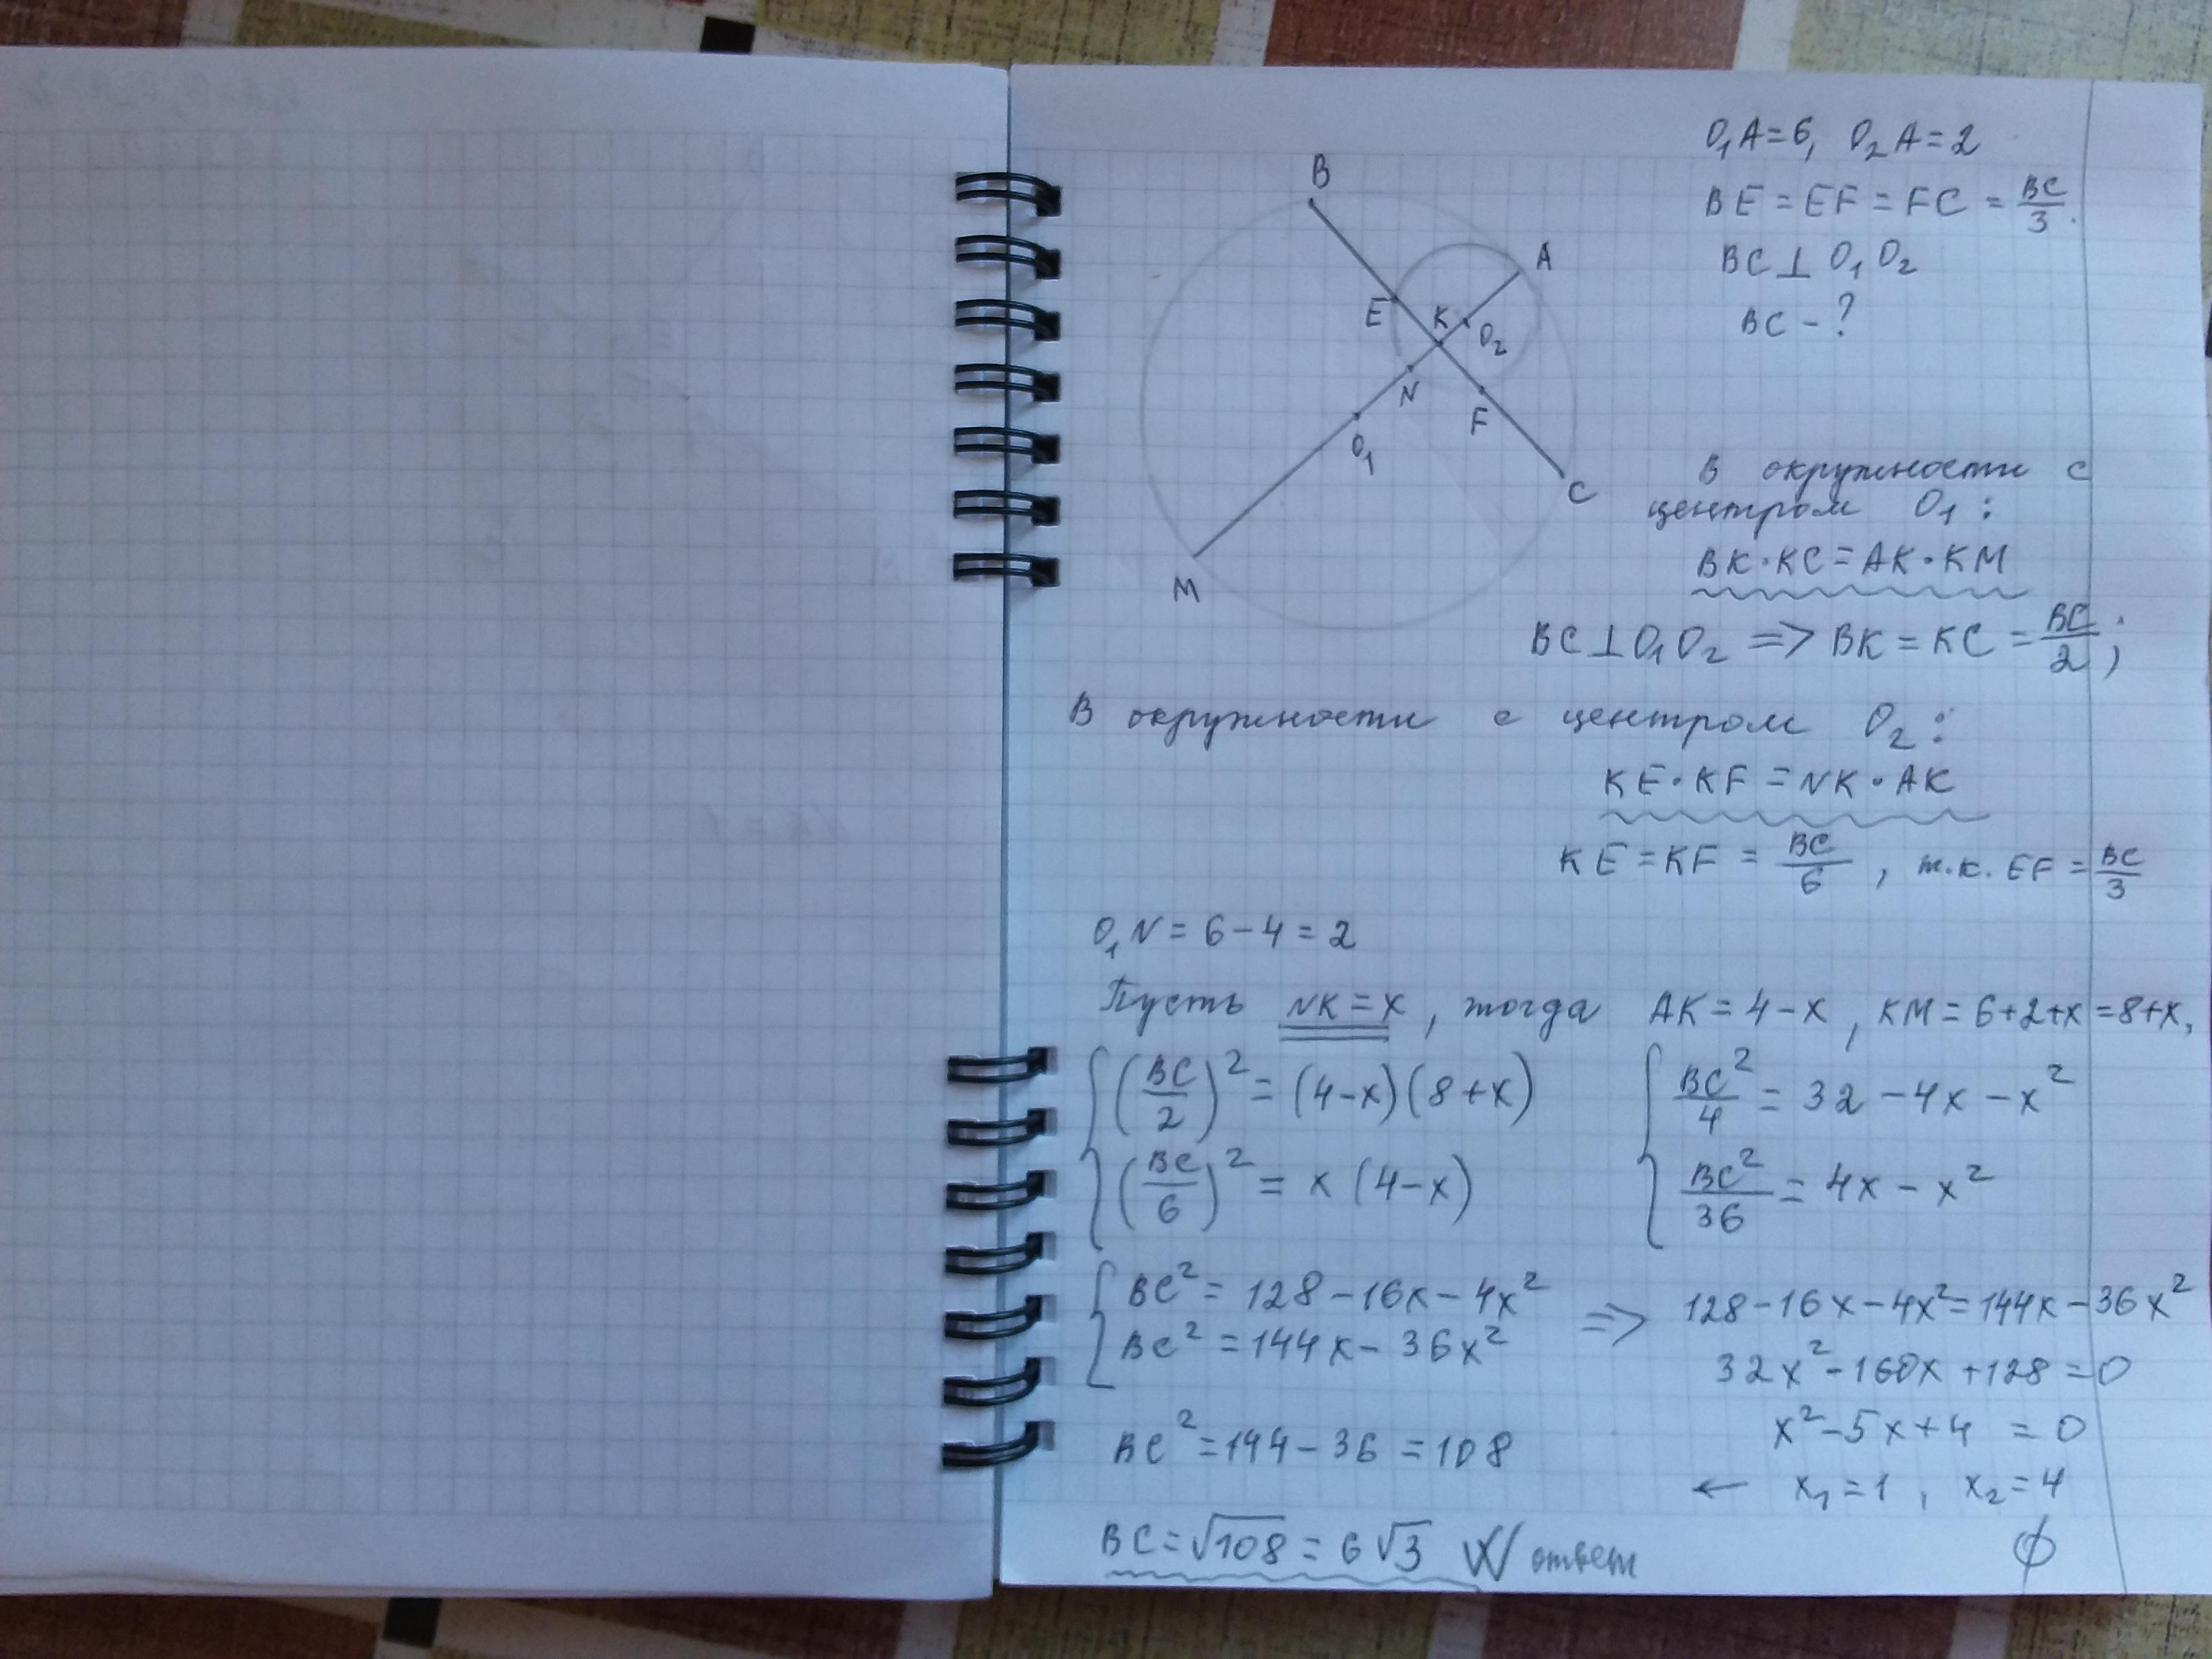 O₁A=6, O₂A=2
BE=EF=FC=BC/3.
BC⊥O₁O₂
BC-?
B
A
E
K
O₂
N
F
O₁
C
M
В окружности с
центром O₁:
BK·KC=AK·KM
BC⊥O₁O₂ => BK=KC=BC/2;
В окружности с центром O₂:
KE·KF=NK·AK
KE=KF=BC/6, т.к. EF=BC/3
O₁N=6-4=2
Пусть NK=x, тогда AK=4-x, KM=6+2+x=8+x,
{(BC/2)²=(4-x)(8+x) {BC²/4=32-4x-x²
(BC/6)²=x(4-x) BC²/36=4x-x²
{BC²=128-16x-4x² => 128-16x-4x²=144x-36x²
BC²=144x-36x²
32x²-160x+128=0
x²-5x+4=0
← x₁=1, x₂=4
∅
BC²=144-36=108
BC=√108=6√3 ответ